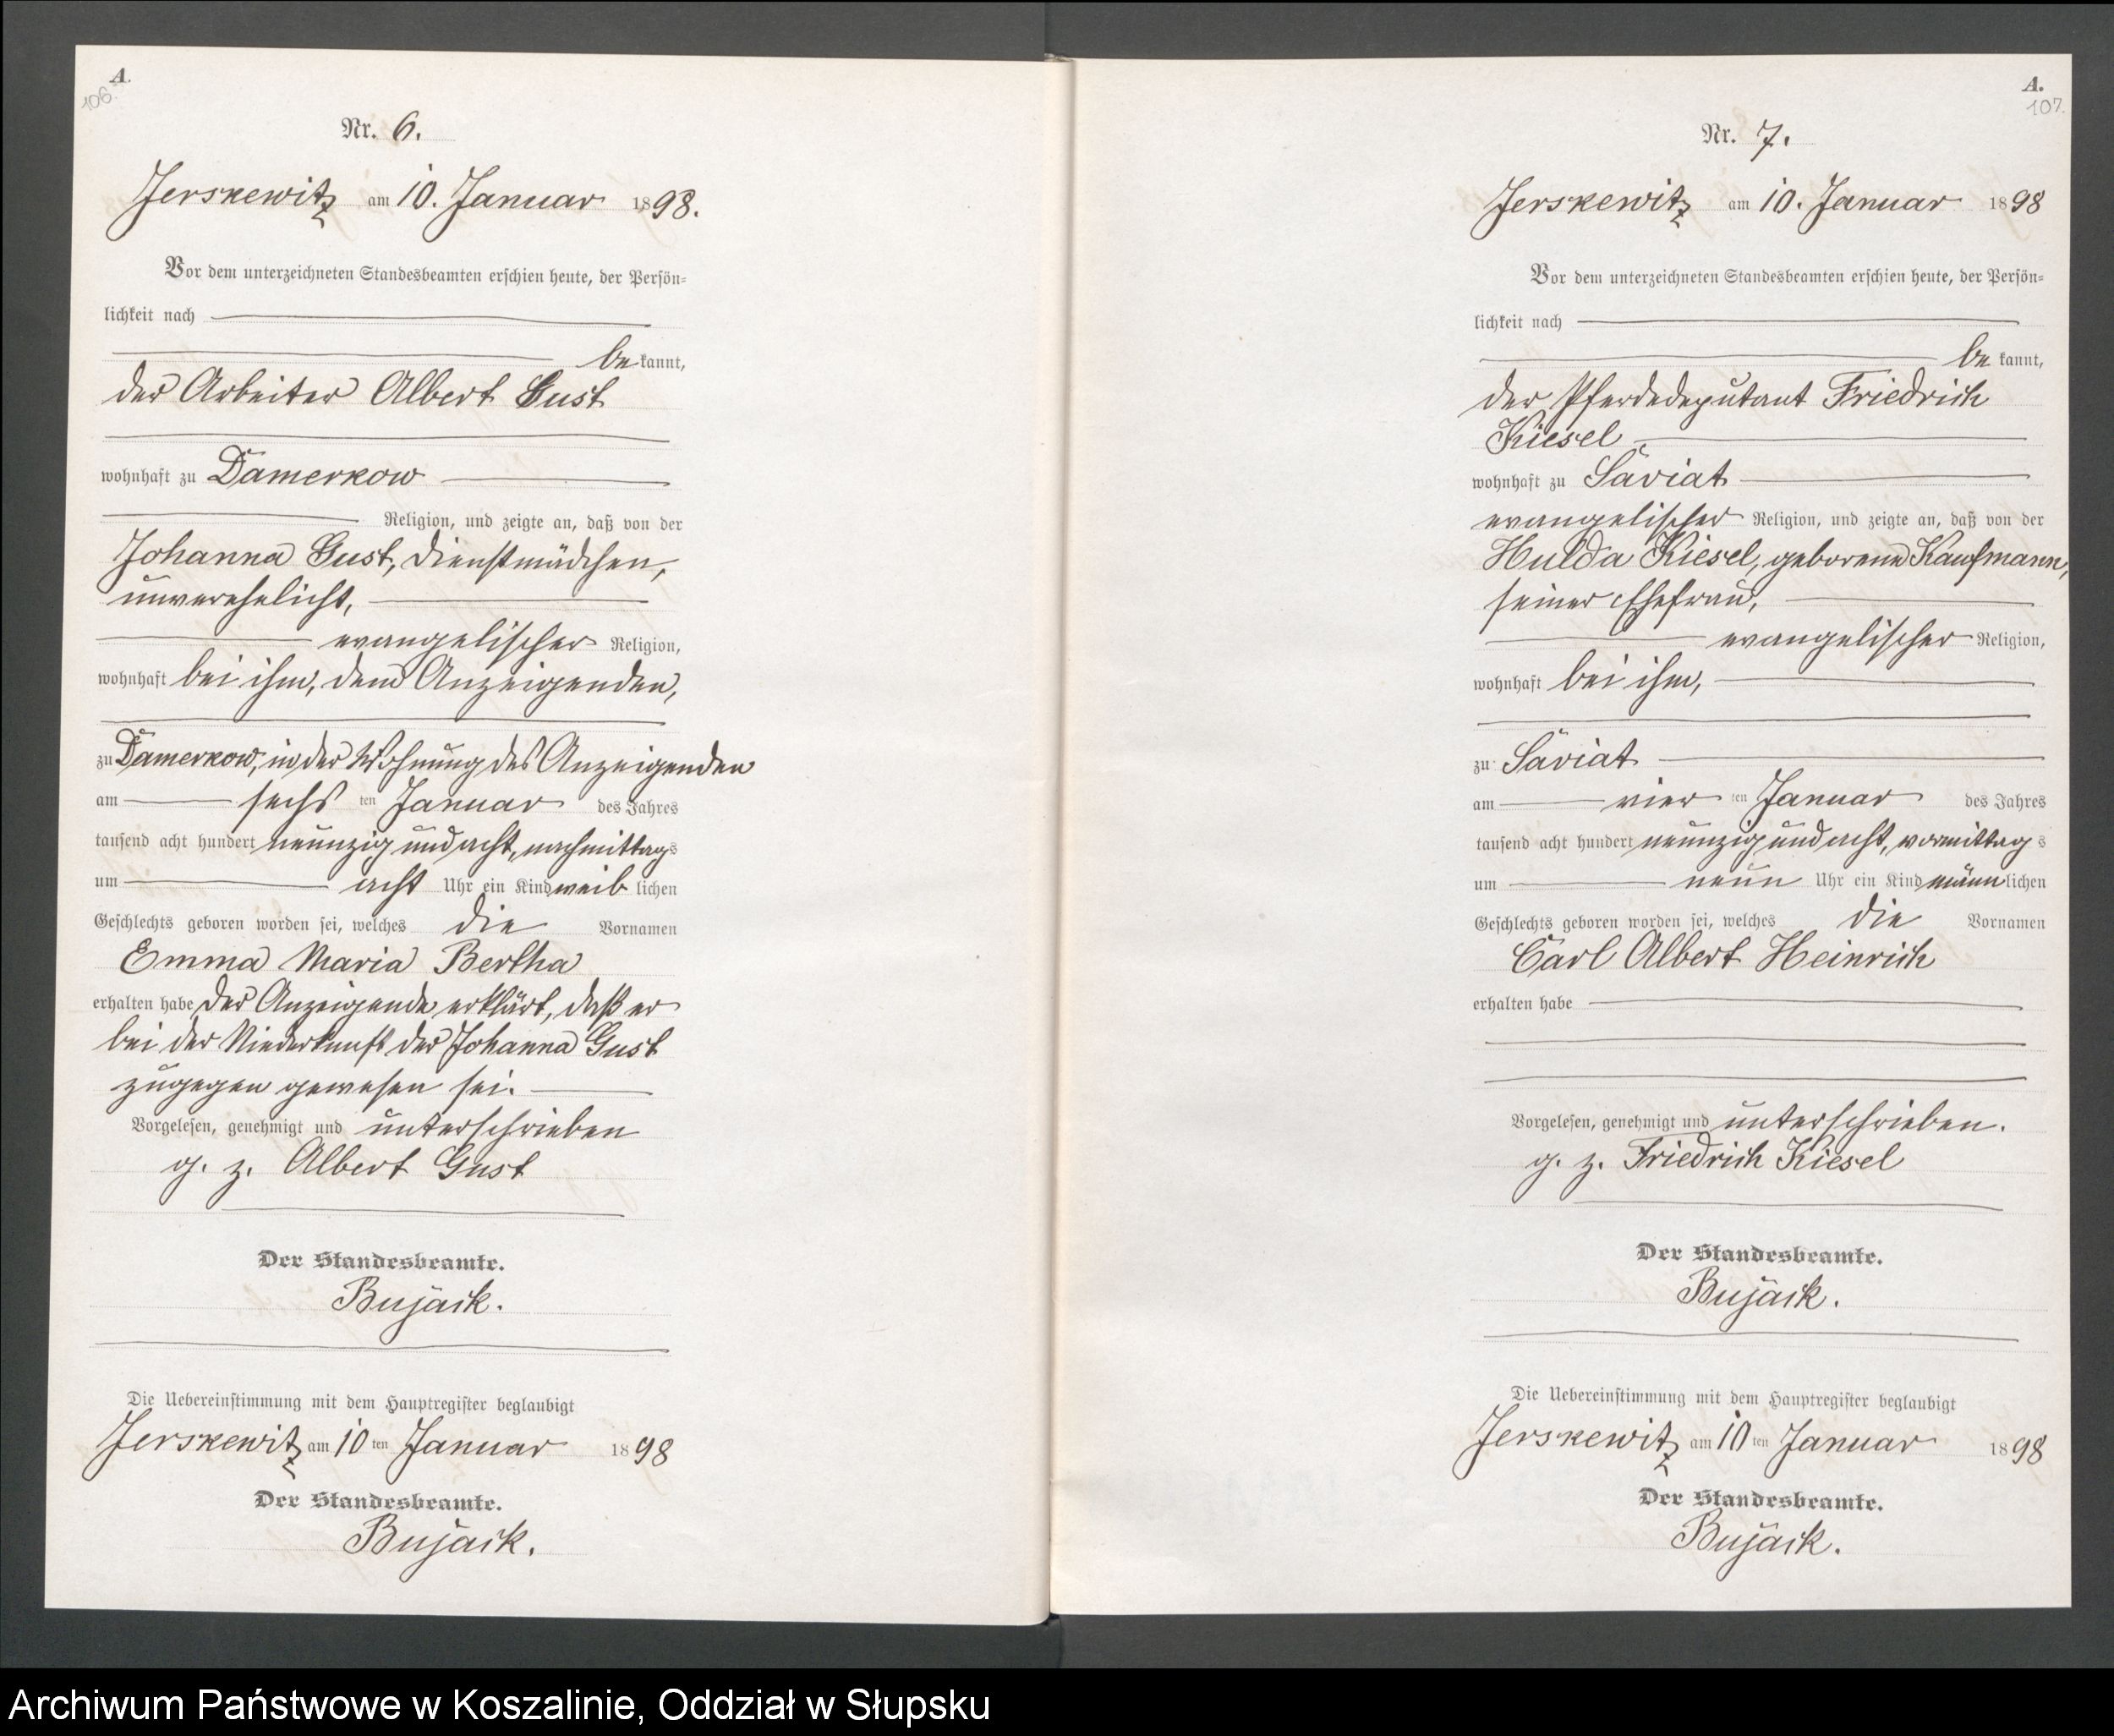 A.
106.
Nr. 6.
Jerskewitz am 10. Januar 1898.
Vor dem unterzeichneten Standesbeamten erschien heute, der Persön-
lichkeit nach
be kannt,
der Arbeiter Albert Gust
wohnhaft zu Damerkow
Religion, und zeigte an, daß von der
Johanna Gust, Dienstmädchen,
unverehelicht,
evangelischer Religion,
wohnhaft bei ihm, dem Anzeigenden,
zu Damerkow, in der Wohnung des Anzeigenden
am sechs ten Januar des Jahres
tausend acht hundert neunzig und acht, nachmittags
um acht Uhr ein Kind weib lichen
Geschlechts geboren worden sei, welches die Vornamen
Emma Maria Bertha
erhalten habe. Der Anzeigende erklärt, daß er
bei der Niederkunft der Johanna Gust
zugegen gewesen sei.
Vorgelesen, genehmigt und unterschrieben
g. z. Albert Gust
Der Standesbeamte.
Bujack.
Die Uebereinstimmung mit dem Hauptregister beglaubigt
Jerskewitz am 10 ten Januar 1898
Der Standesbeamte.
Bujack.
A.
107.
Nr. 7.
Jerskewitz am 10. Januar 1898
Vor dem unterzeichneten Standesbeamten erschien heute, der Persön-
lichkeit nach
be kannt,
der Pferdedeputant Friedrich
Kiesel
wohnhaft zu Saviat
evangelischer Religion, und zeigte an, daß von der
Hulda Kiesel, geborene Kaufmann,
seiner Ehefrau,
evangelischer Religion,
wohnhaft bei ihm,
zu Saviat
am vier ten Januar des Jahres
tausend acht hundert neunzig und acht, vormittags
um neun Uhr ein Kind männ lichen
Geschlechts geboren worden sei, welches die Vornamen
Carl Albert Heinrich
erhalten habe
Vorgelesen, genehmigt und unterschrieben.
g. z. Friedrich Kiesel
Der Standesbeamte.
Bujack.
Die Uebereinstimmung mit dem Hauptregister beglaubigt
Jerskewitz am 10 ten Januar 1898
Der Standesbeamte.
Bujack.
Archiwum Państwowe w Koszalinie, Oddział w Słupsku